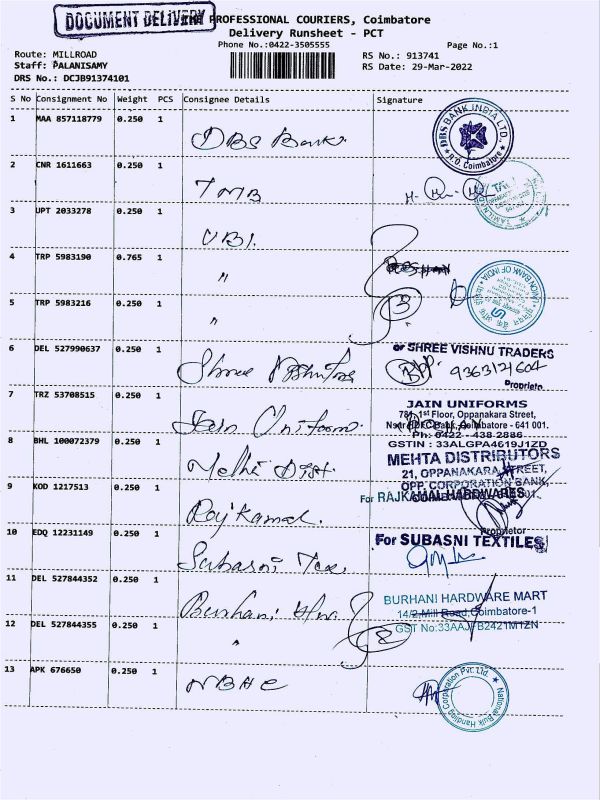 DOCUMENT DELIVERY
THE PROFESSIONAL COURIERS, Coimbatore
Delivery Runsheet - PCT
Phone No.:0422-3505555
Page No.:1
Route: MILLROAD
Staff: PALANISAMY
DRS No.: DCJB91374101
RS No.: 913741
RS Date: 29-Mar-2022
S No Consignment No Weight PCS Consignee Details Signature
1 MAA 857118779 0.250 1 DBS Bank
DBS BANK INDIA LTD., R.O. Coimbatore
2 CNR 1611663 0.250 1 TMB
3 UPT 2033278 0.250 1 UBI.
4 TRP 5983190 0.765 1 "
UNION BANK OF INDIA
5 TRP 5983216 0.250 1 " 3
6 DEL 527990637 0.250 1 Shree Vishnu
SHREE VISHNU TRADERS
9363121604
Proprietor
7 TRZ 53708515 0.250 1 Jain Uniform.
JAIN UNIFORMS
781, 1st Floor, Oppanakara Street,
Near HDFC Bank, Coimbatore - 641 001.
Ph: 0422 - 438 2886
GSTIN : 33ALGPA4619J1ZD
8 BHL 100072379 0.250 1 Methi Dist.
MEHTA DISTRIBUTORS
21, OPPANAKARA STREET,
OPP. CORPORATION BANK,
9 KOD 1217513 0.250 1 Rajkamal.
For RAJKAMAL HARDWARES
Proprietor
10 EDQ 12231149 0.250 1 Subasni Tex.
For SUBASNI TEXTILES
11 DEL 527844352 0.250 1 Burhani H/w
BURHANI HARDWARE MART
14/2, Mill Road, Coimbatore-1
GST No:33AAJFB2421M1ZN
12 DEL 527844355 0.250 1 " 2
13 APK 676650 0.250 1 NBHC
National Bulk Handling Corporation Pvt. Ltd.